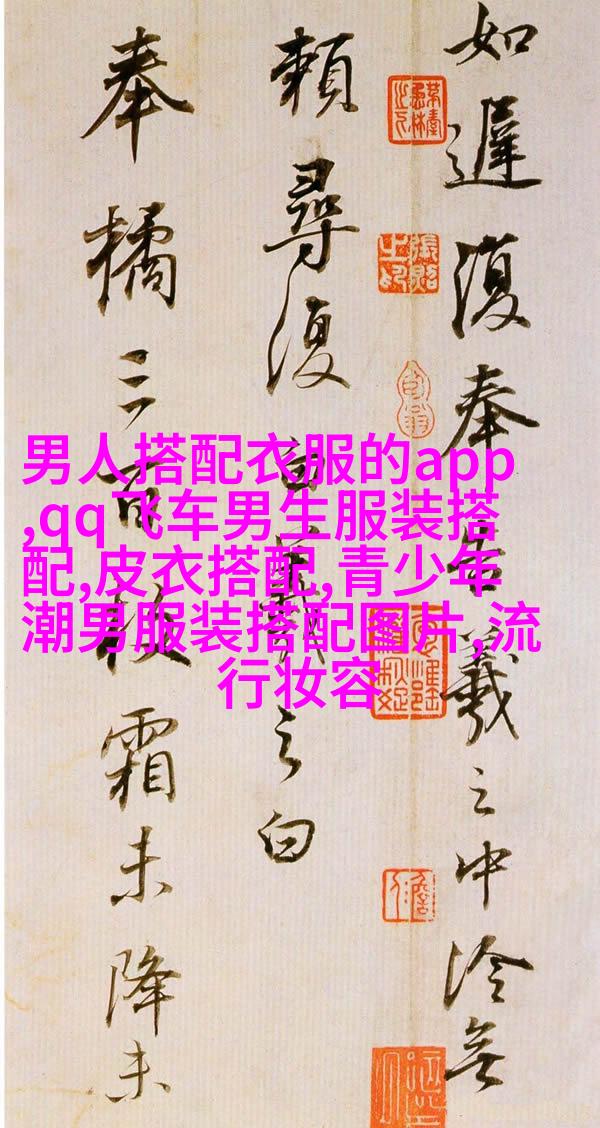 如遲復奉告羲之中冷無
賴尋復白羲之白
奉橘三百枚霜未降未
男人搭配衣服的app
,qq飞车男生服装搭
配,皮衣搭配,青少年
潮男服装搭配图片,流
行妆容